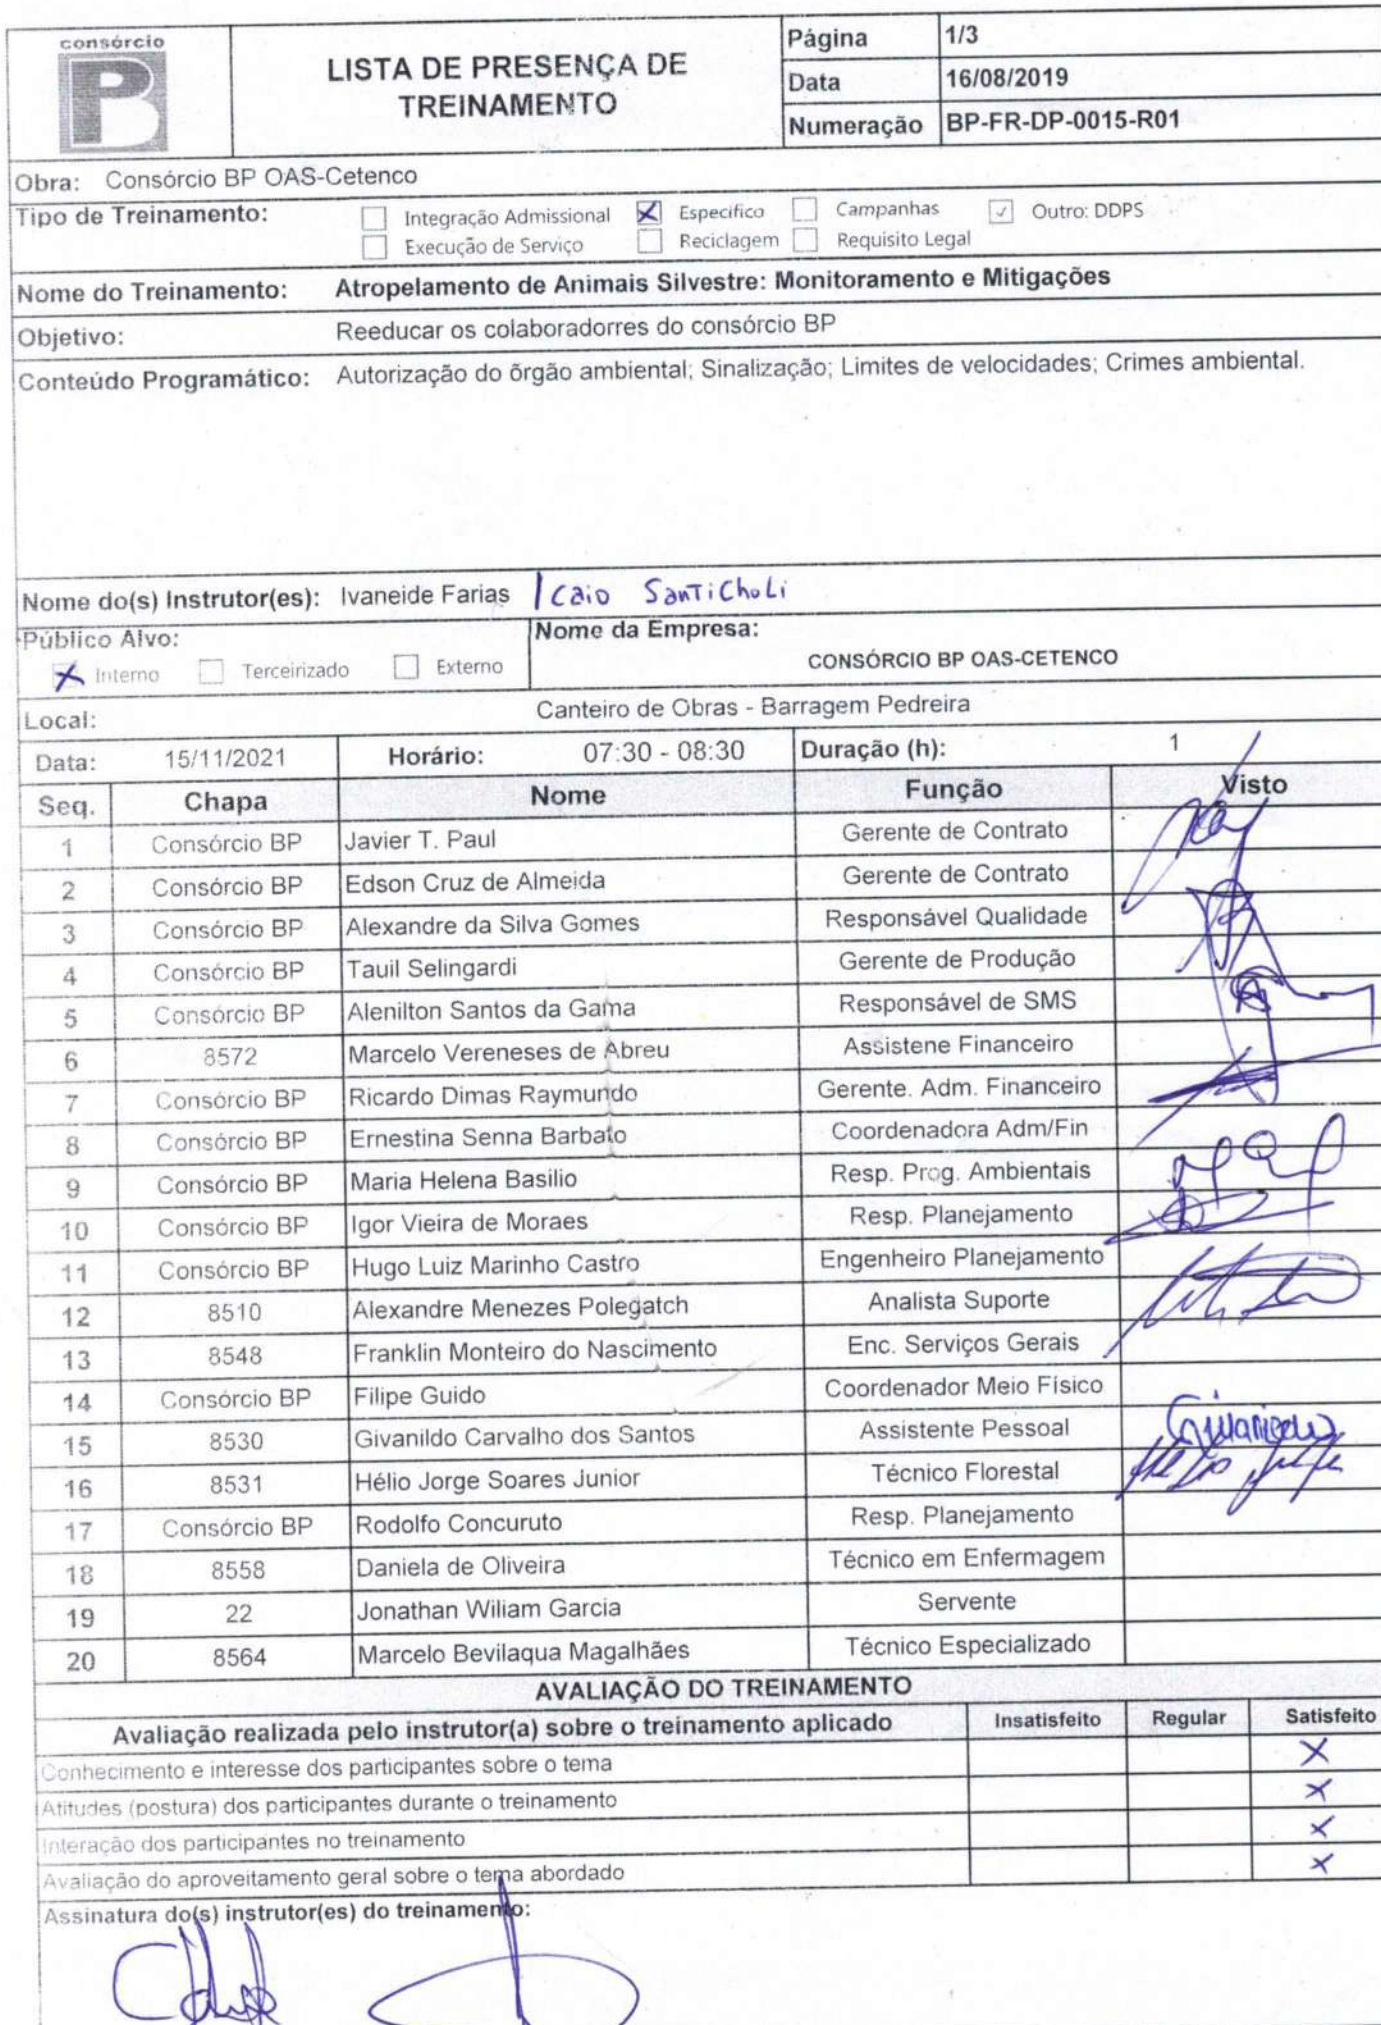 consórcio
LISTA DE PRESENÇA DE
TREINAMENTO
Página 1/3
Data 16/08/2019
Numeração BP-FR-DP-0015-R01
Obra: Consórcio BP OAS-Cetenco
Tipo de Treinamento: Integração Admissional Especifico Campanhas Outro: DDPS
Execução de Serviço Reciclagem Requisito Legal
Nome do Treinamento: Atropelamento de Animais Silvestre: Monitoramento e Mitigações
Objetivo: Reeducar os colaboradorres do consórcio BP
Conteúdo Programático: Autorização do õrgão ambiental; Sinalização; Limites de velocidades; Crimes ambiental.
Nome do(s) Instrutor(es): Ivaneide Farias / Caio SanTiChoLi
Público Alvo: Nome da Empresa:
Interno Terceirizado Externo CONSÓRCIO BP OAS-CETENCO
Local: Canteiro de Obras - Barragem Pedreira
Data: 15/11/2021 Horário: 07:30 - 08:30 Duração (h): 1
Seq. Chapa Nome Função Visto
1 Consórcio BP Javier T. Paul Gerente de Contrato
2 Consórcio BP Edson Cruz de Almeida Gerente de Contrato
3 Consórcio BP Alexandre da Silva Gomes Responsável Qualidade
4 Consórcio BP Tauil Selingardi Gerente de Produção
5 Consórcio BP Alenilton Santos da Gama Responsável de SMS
6 8572 Marcelo Vereneses de Abreu Assistene Financeiro
7 Consórcio BP Ricardo Dimas Raymundo Gerente. Adm. Financeiro
8 Consórcio BP Ernestina Senna Barbato Coordenadora Adm/Fin
9 Consórcio BP Maria Helena Basilio Resp. Prog. Ambientais
10 Consórcio BP Igor Vieira de Moraes Resp. Planejamento
11 Consórcio BP Hugo Luiz Marinho Castro Engenheiro Planejamento
12 8510 Alexandre Menezes Polegatch Analista Suporte
13 8548 Franklin Monteiro do Nascimento Enc. Serviços Gerais
14 Consórcio BP Filipe Guido Coordenador Meio Físico
15 8530 Givanildo Carvalho dos Santos Assistente Pessoal
16 8531 Hélio Jorge Soares Junior Técnico Florestal
17 Consórcio BP Rodolfo Concuruto Resp. Planejamento
18 8558 Daniela de Oliveira Técnico em Enfermagem
19 22 Jonathan Wiliam Garcia Servente
20 8564 Marcelo Bevilaqua Magalhães Técnico Especializado
AVALIAÇÃO DO TREINAMENTO
Avaliação realizada pelo instrutor(a) sobre o treinamento aplicado Insatisfeito Regular Satisfeito
Conhecimento e interesse dos participantes sobre o tema X
Atitudes (postura) dos participantes durante o treinamento X
Interação dos participantes no treinamento X
Avaliação do aproveitamento geral sobre o tema abordado X
Assinatura do(s) instrutor(es) do treinamento: